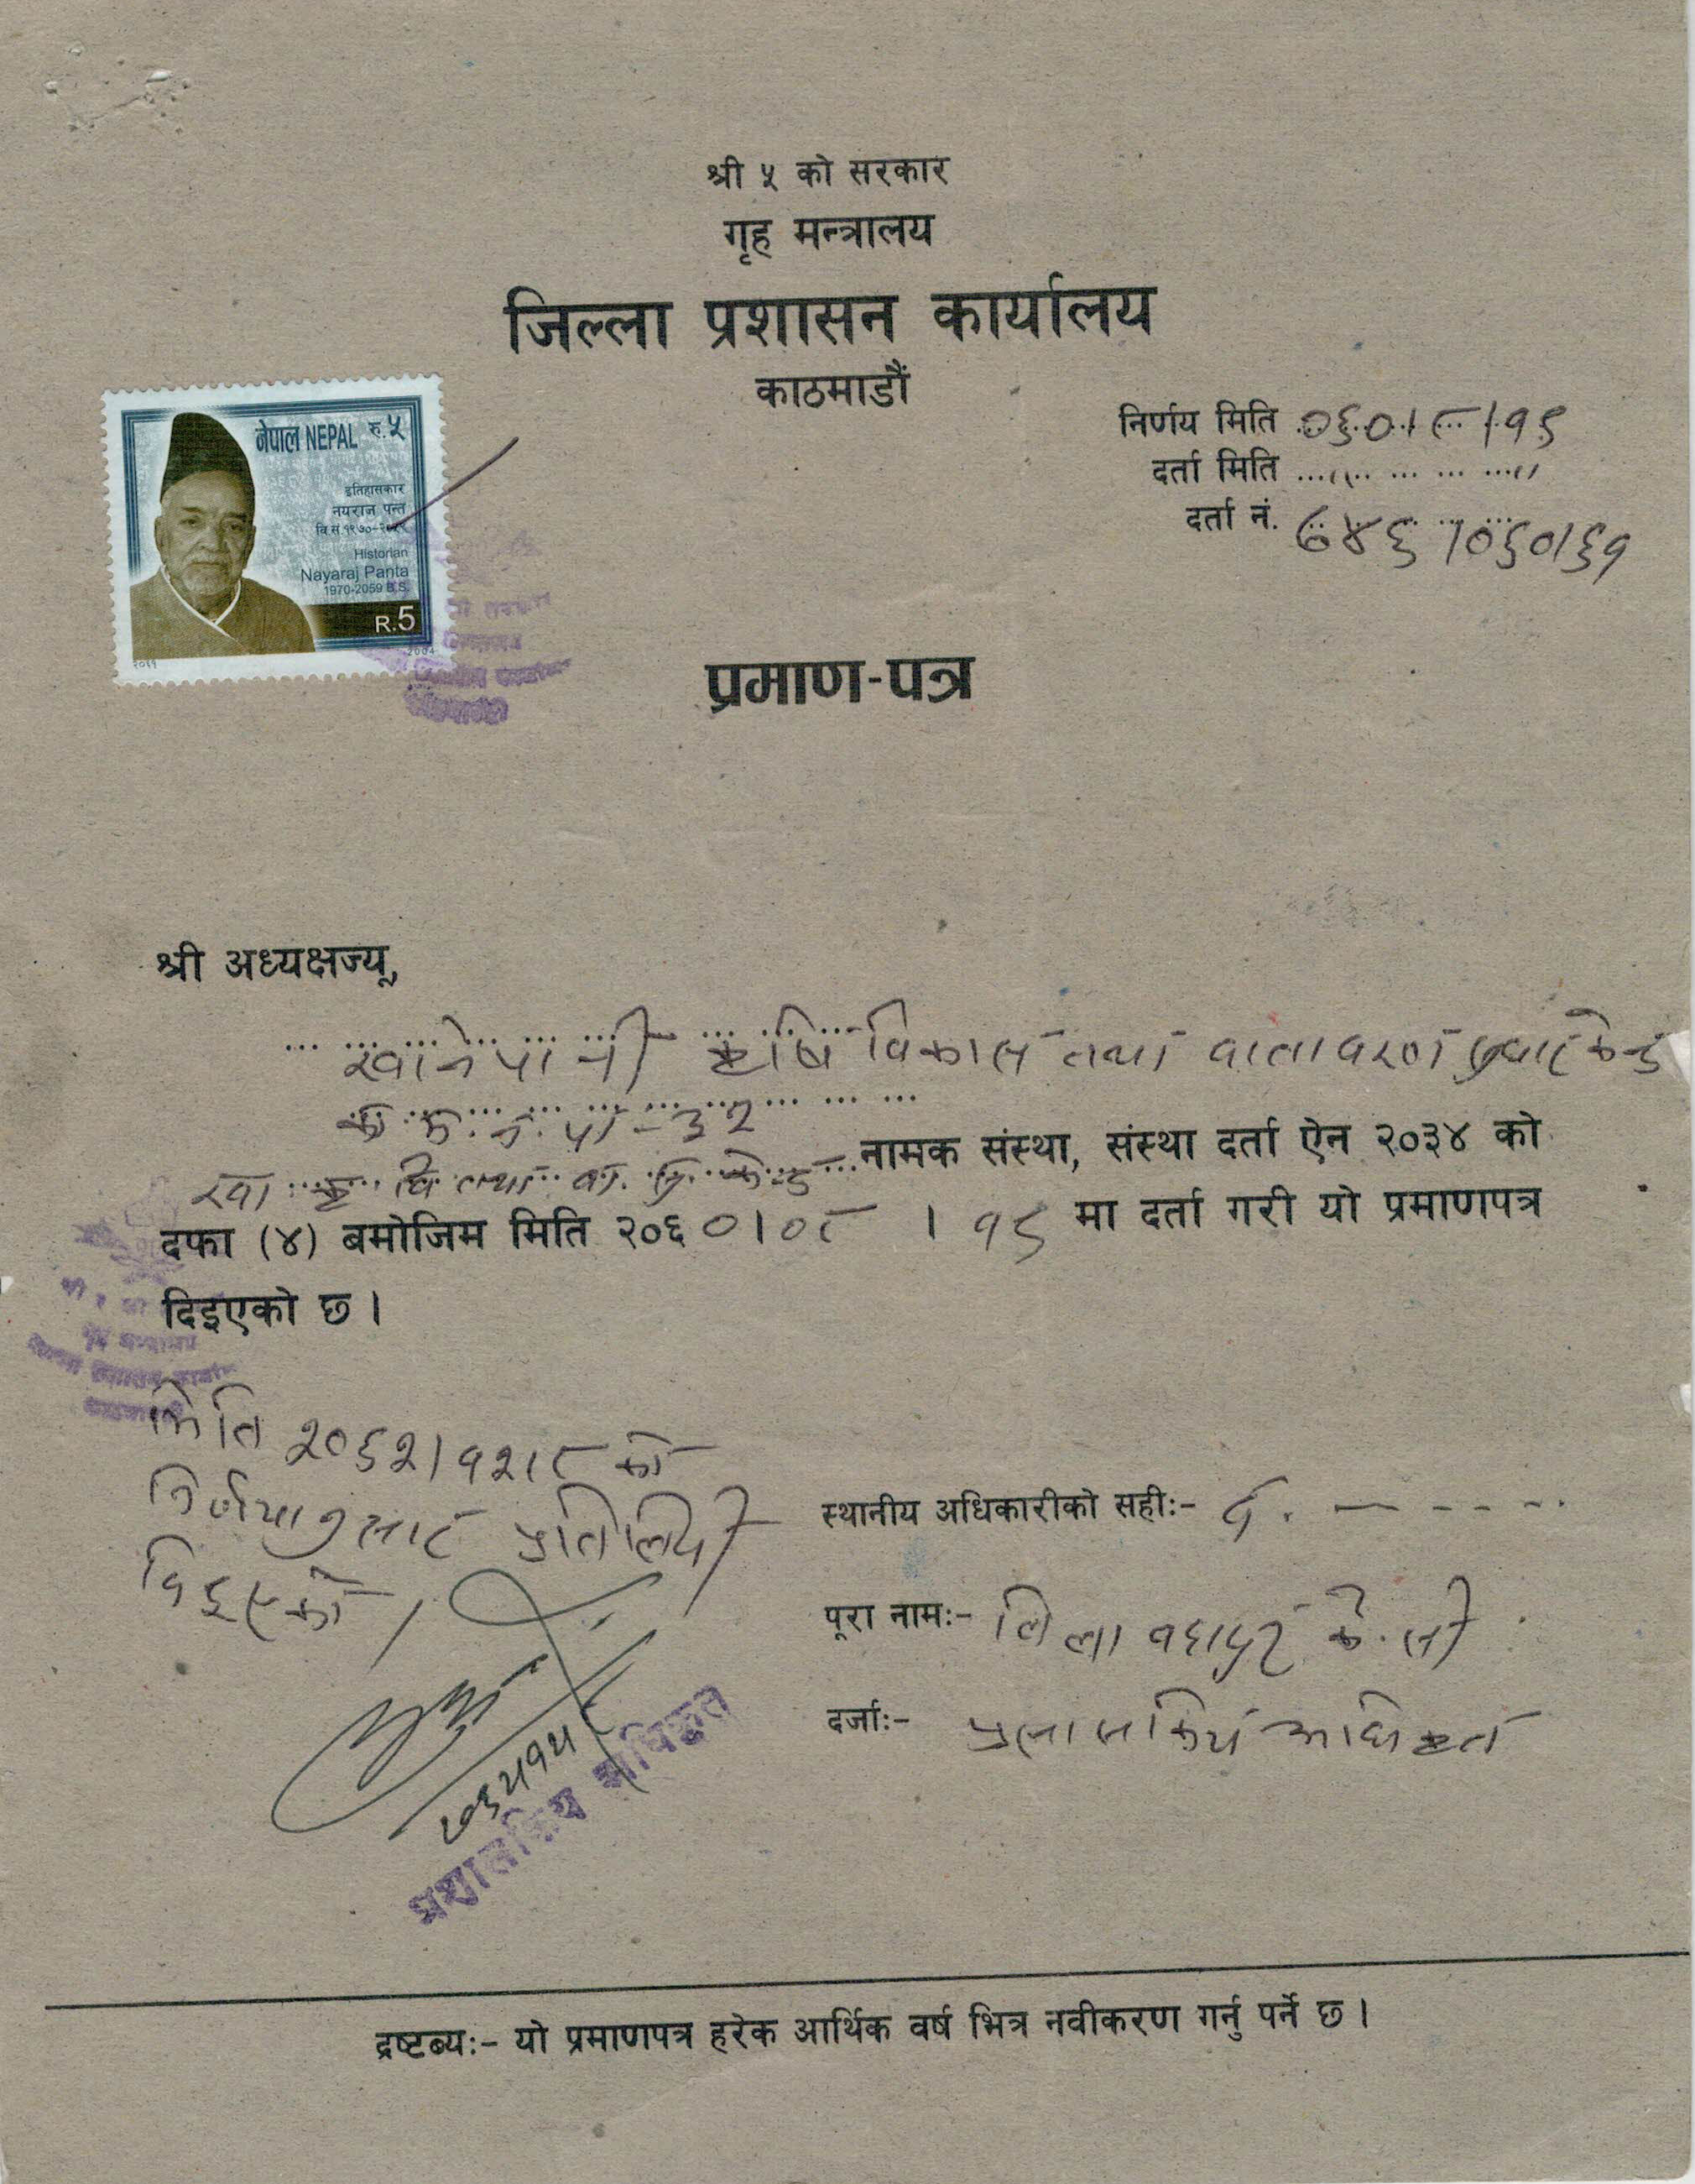 श्री ५ को सरकार
गृह मन्त्रालय
जिल्ला प्रशासन कार्यालय
काठमाडौं
नेपाल NEPAL रु.५
इतिहासकार
नयराज पन्त
वि सं १९७०-२०५९
Historian
Nayaraj Panta
1970-2059 B.S.
R.5
२०६१ 2004
निर्णय मिति ०६०।८।१९
दर्ता मिति ...,, ... ... ...,,
दर्ता नं. ७४६।०६०।६१
प्रमाण-पत्र
श्री अध्यक्षज्यू,
खानेपानी कृषि विकास तथा वातावरण सुधार केन्द्र
का.म.न.पा-३२
खा कृ वि तथा वा. सु. केन्द्र नामक संस्था, संस्था दर्ता ऐन २०३४ को
दफा (४) बमोजिम मिति २०६०।०८।१९ मा दर्ता गरी यो प्रमाणपत्र
दिइएको छ ।
मिति २०६२।१२।८ को
निर्णयानुसार प्रतिलिपी
दिइएको ।
प्रशासकिय अधिकृत
स्थानीय अधिकारीको सहीः- द. - - - -
पूरा नामः- लिला बहादुर के.सी
दर्जाः- प्रसासकिय अधिकृत
द्रष्टब्यः- यो प्रमाणपत्र हरेक आर्थिक वर्ष भित्र नवीकरण गर्नु पर्ने छ ।